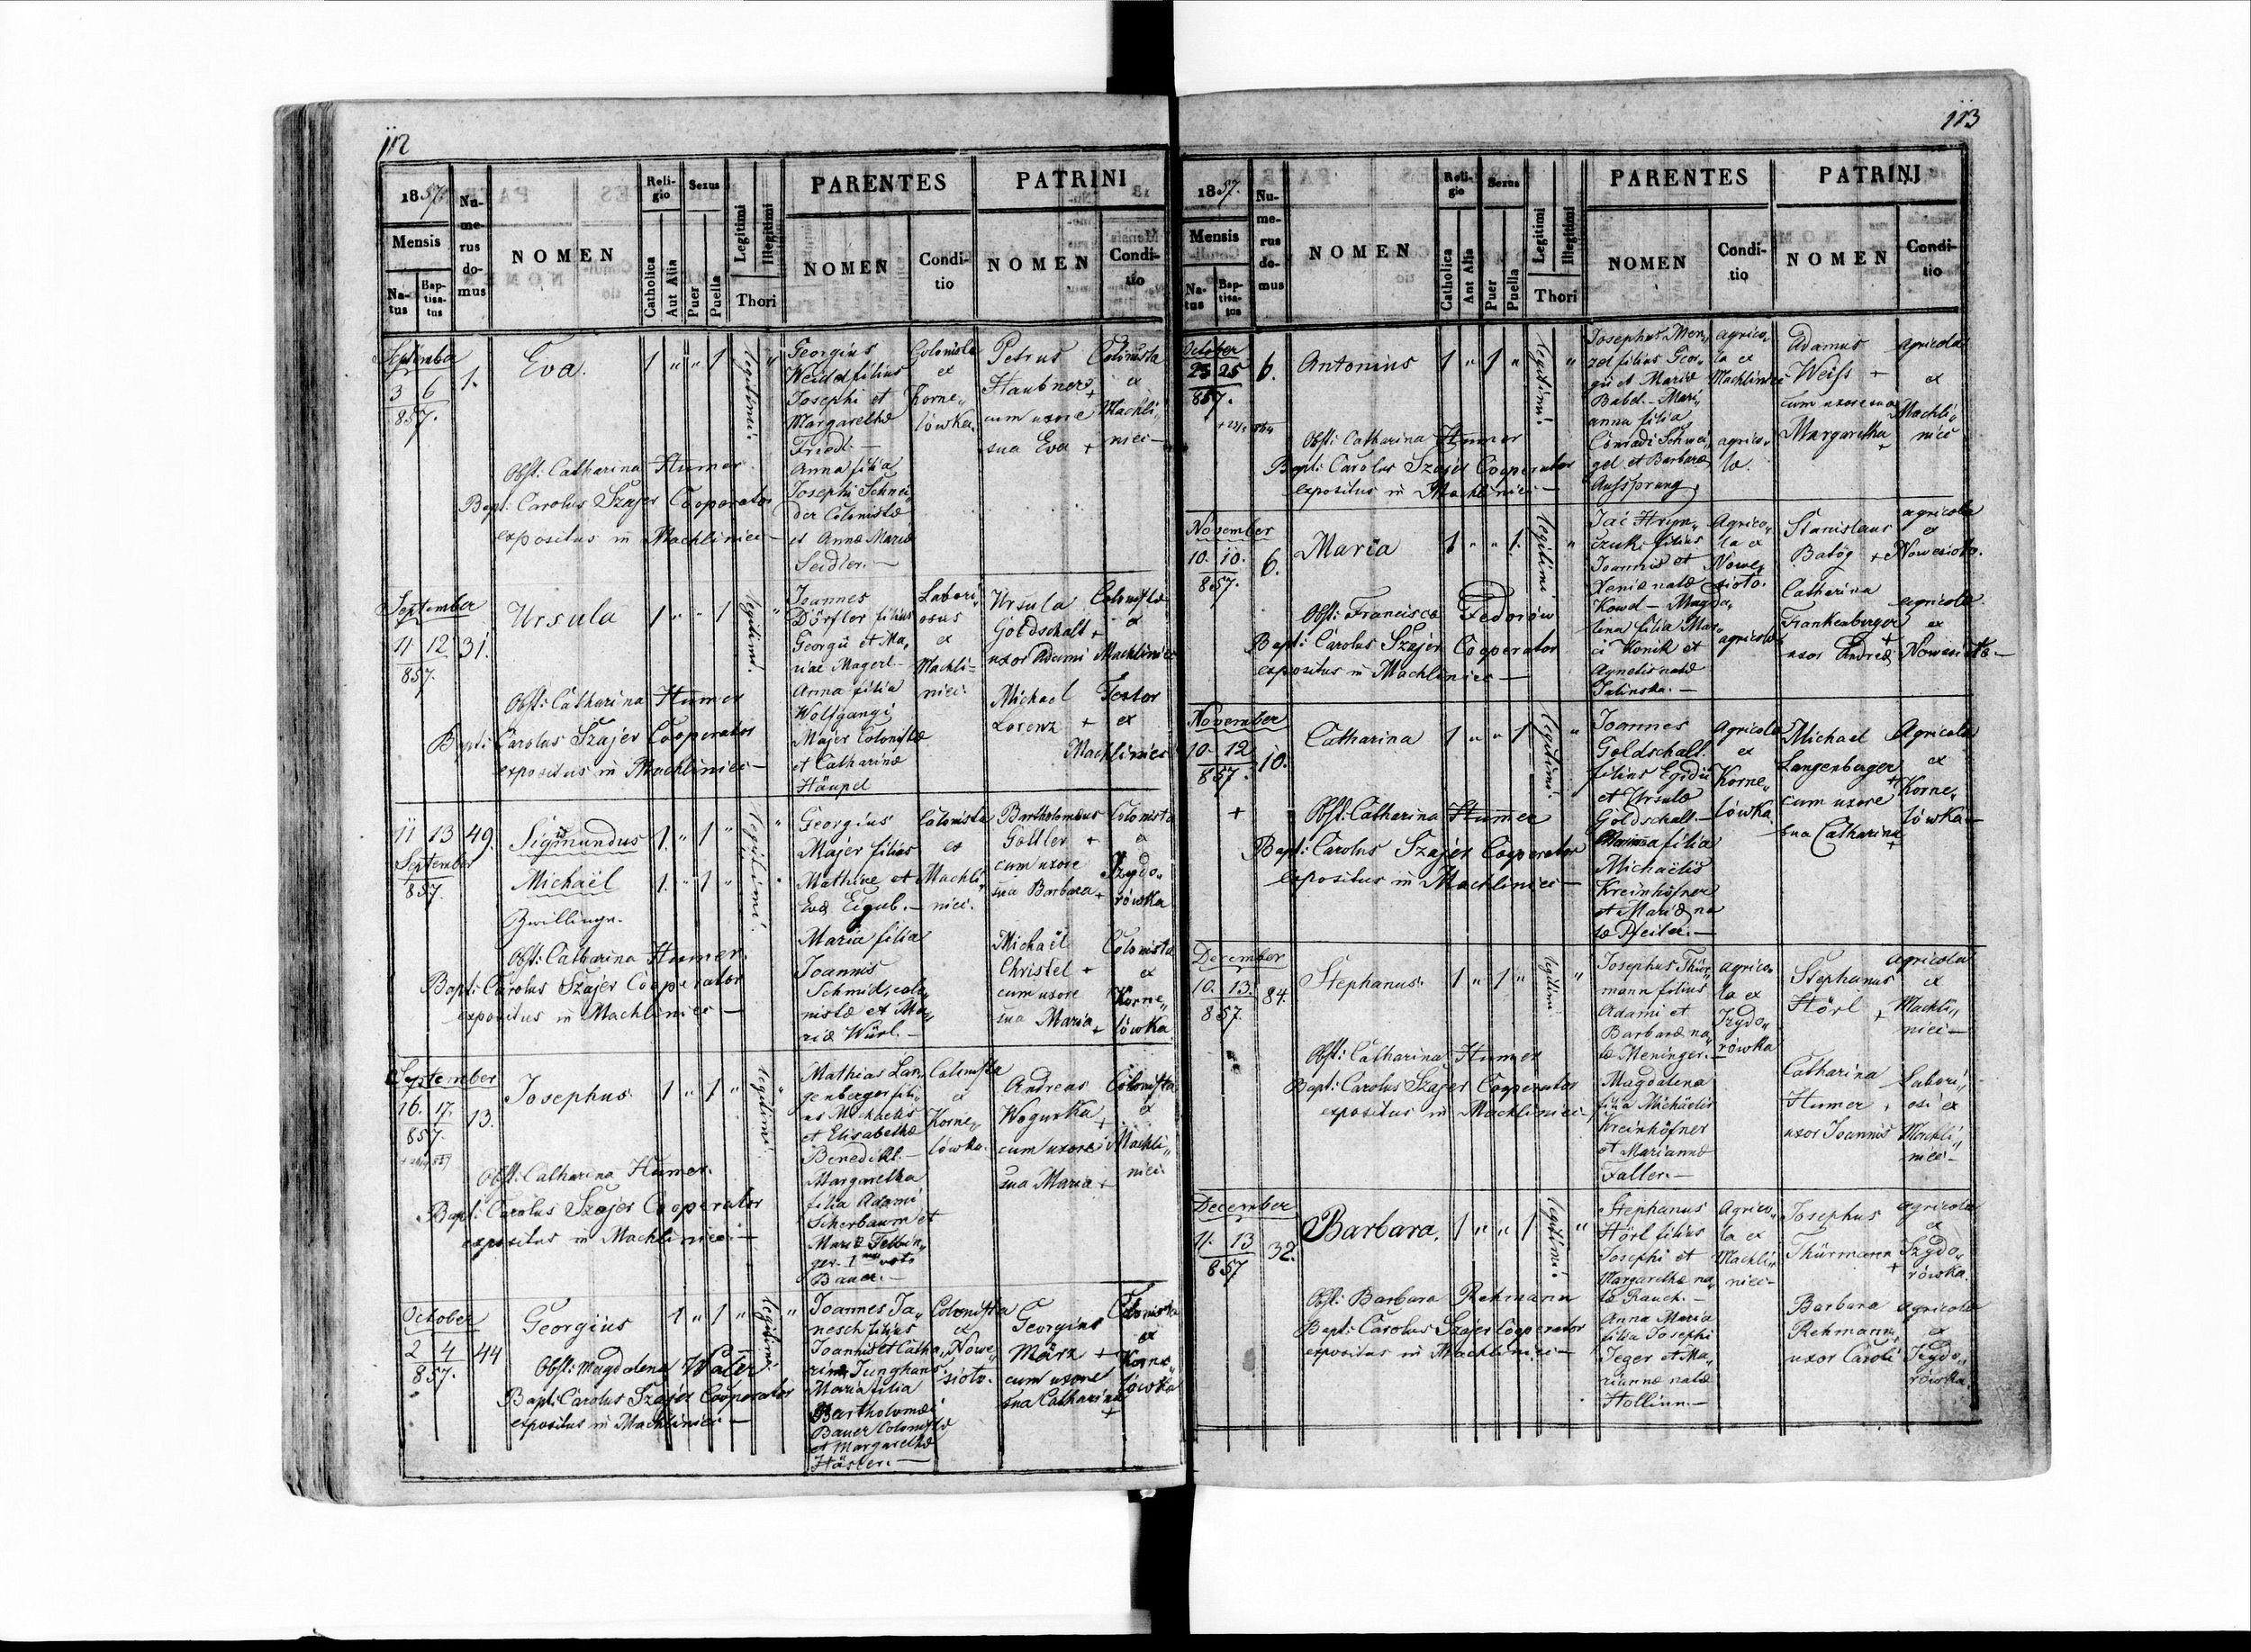 112
1857.
Mensis
Na-
tus
Bap-
tisa-
tus
Nu-
me-
rus
do-
mus
NOMEN
Reli-
gio
Catholica
Aut Alia
Sexus
Puer
Puella
Legitimi
Illegitimi
Thori
PARENTES
NOMEN
Condi-
tio
PATRINI
NOMEN
Condi-
tio
September
3 6
857.
1.
Eva.
1 " " 1
legitimi.
"
Obst: Catharina Humer
Bapt: Carolus Szajer Cooperator
expositus in Machliniec —
Georgius
Weidl filius
Josephi et
Margarethæ
Friedl. —
Anna filia
Josephi Schnei„
der Colonistæ
et Annæ Mariæ
Seidler. —
Colonista
ex
Korne„
lówka.
Petrus
Haubner +
cum uxore
sua Eva +
Colonista
ex
Machli„
niec —
September
11 12
857.
31.
Ursula
1 " " 1
legitimi.
"
Obst: Catharina Humer
Bapt: Carolus Szajer Cooperator
expositus in Machliniec —
Joannes
Dörfler filius
Georgii et Ma„
riae Magerl —
Anna filia
Wolfgangi
Majer Colonistæ
et Catharinæ
Häupel
Labori„
osus
ex
Machli=
niec.
Ursula
Goldschalt +
uxor Adami
Michael
Lorenz +
Colonistæ
ex
Machliniec
Textor
ex
Machliniec
11 13
September
857.
49.
Sigismundus
1. " 1 "
Michaël
1. " 1 "
Zwillinge.
legitimi.
"
Obst: Catharina Humer.
Bapt: Carolus Szajer Cooperator
expositus in Machliniec —
Georgius
Majer filius
Mathiæ et
Evæ Eigub. —
Maria filia
Joannis
Schmid, colo„
nistæ et Ma„
riæ Würl. —
Colonista
ex
Machli„
niec.
Bartholomæus
Göttler +
cum uxore
sua Barbara +
Michaël
Christel +
cum uxore
sua Maria +
Colonista
ex
Izydo„
rówka
Colonista
ex
Korne„
lówka
September
16. 17.
857.
13.
Josephus.
1 " 1 "
legitimi.
"
Obst: Catharina Humer.
Bapt: Carolus Szajer Cooperator
expositus in Machliniec —
Mathias Lan„
genberger fili„
us Michaelis
et Elisabethæ
Benedikt. —
Margaretha
filia Adami
Scherbaum et
Mariæ Felbin„
ger — I voto
Bauer. —
Colonista
ex
Korne„
lówka.
Andreas
Wogurka +
cum uxore
sua Maria +
Colonista
ex
Machli„
niec
October
2 4
857.
44
Georgius
1 " 1 "
legitimi.
"
Obst: Magdalena Water
Bapt: Carolus Szajer Cooperator
expositus in Machliniec —
Joannes Ja„
nesch filius
Joannis et Catha„
rinæ Junghans
Maria filia
Bartholomæi
Bauer Colonistæ
et Margarethæ
Häsler. —
Colonista
ex
Nowe„
sioło.
Georgius
März +
cum uxore
sua Catharina +
Colonista
ex
Korne„
lówka
113
1857.
Mensis
Na-
tus
Bap-
tisa-
tus
Nu-
me-
rus
do-
mus
NOMEN
Reli-
gio
Catholica
Aut Alia
Sexus
Puer
Puella
Legitimi
Illegitimi
Thori
PARENTES
NOMEN
Condi-
tio
PATRINI
NOMEN
Condi-
tio
October
25
857.
6.
Antonius
1 " 1 "
legitimi.
"
Obst: Catharina Humer
Bapt: Carolus Szajer Cooperator
expositus in Machliniec —
Josephus Men„
zel filius Geor„
gii et Mariæ
Babel. — Mari„
anna filia
Conradi Schwei„
gel et Barbaræ
Aufsprung.
agrico„
la ex
Machliniec
agrico„
la.
Adamus
Weiss +
cum uxore sua
Margaretha +
agricola
ex
Machli„
niec
November
10. 10.
857.
6.
Maria
1 " " 1.
legitimi
"
Obst: Francisca Fedorów
Bapt: Carolus Szajer Cooperator
expositus in Machliniec —
Jać Hryn„
czuk filius
Joannis et
Xeniæ natæ
Kowal — Magda„
lina filia Mar„
ci Konik et
Agnetis natæ
Jalinska. —
Agrico„
la ex
Nowe„
sioło.
agricola
Stanislaus
Batóg +
Catharina
Frankenberger +
uxor Andreæ
agricola
ex
Nowesioło.
agricola
ex
Nowesioło —
November
10. 12
857.
+
10.
Catharina
1 " " 1
legitimi.
"
Obst: Catharina Humer
Bapt: Carolus Szajer Cooperator
expositus in Machliniec —
Joannes
Goldschalt.
filius Egidii
et Ursulæ
Goldschalt. —
Marianna filia
Michaëlis
Kreinhöfner
et Mariæ na„
tæ Pfeiler. —
agricola
ex
Korne„
lówka
Michael
Langenberger +
cum uxore
sua Catharina +
Agricola
ex
Korne„
lówka —
December
10. 13.
857.
84.
Stephanus.
1 " 1 "
legitimi
"
Obst: Catharina Humer
Bapt: Carolus Szajer Cooperator
expositus in Machliniec —
Josephus Thür„
mann filius
Adami et
Barbaræ na„
tæ Meninger. —
Magdalena
filia Michaëlis
Kreinhöfner
et Mariannæ
Faller. —
agrico„
la ex
Izydo„
rówka
Stephanus
Hörl +
Catharina
Humer +
uxor Joannis
agricola
ex
Machli„
niec —
Labori„
osi ex
Machli„
niec —
December
11. 13
857
32.
Barbara.
1 " " 1
legitimi.
"
Obst: Barbara Rehmann
Bapt: Carolus Szajer Cooperator
expositus in Machliniec —
Stephanus
Hörl filius
Josephi et
Margarethæ na„
tæ Rauch. —
Anna Maria
filia Josephi
Jeger et Ma„
riannæ natæ
Hollinn —
Agrico„
la ex
Machli„
niec —
Josephus
Thürmann +
Barbara
Rehmann +
uxor Caroli
agricola
ex
Izydo„
rówka.
agricola
ex
Izydo„
rówka.